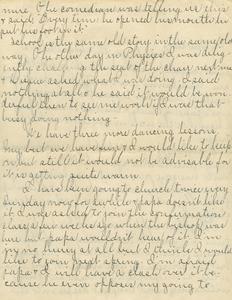 mire. The comedian was telling us this
& said "Every time he opened his mouth he
put his foot in it."
School is the same old story in the same old
way. The other day in Physics I was dilig-
ently the seat of the chair next me
& Dique asked what I was doing. I said
nothing at all & he said it would be won-
derful then to see me working if I was that
busy doing nothing.
We have three more dancing lessons
but we have fun & I would like to keep
on but still it would not be advisable for
it is getting quite warm.
I have been going to church twice every
Sunday now for awhile & papa doesn't like
it. I was asked to join the confirmation
class a few weeks ago when the bishop was
here but papa wouldn't hear of it. I'm
in no hurry at all but I think I would
like to join next spring. I'm afraid
papa & I will have a clash over it be-
cause he even opposes my going to